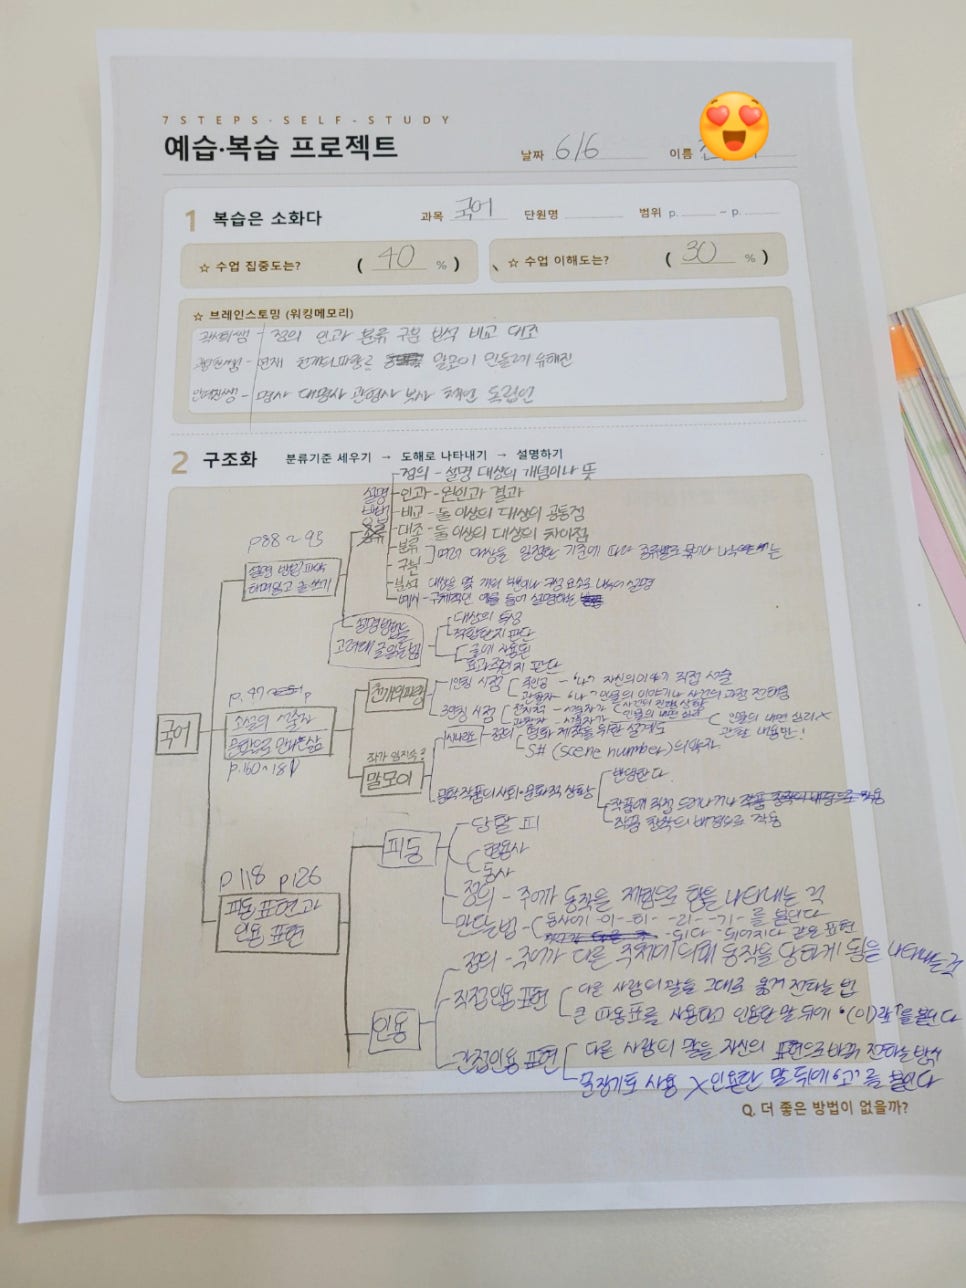 7 STEPS·SELF-STUDY
예습·복습 프로젝트
날짜 6/6 이름
1 복습은 소화다 과목 국어 단원명 범위 p. ~ p.
☆ 수업 집중도는? ( 40 % ) ☆ 수업 이해도는? ( 30 % )
☆ 브레인스토밍 (워킹메모리)
정의 인과 분류 구분 분석 비교 대조
말모이 유해진
명사 대명사 관형사 부사 체언 독립언
2 구조화 분류기준 세우기 → 도해로 나타내기 → 설명하기
정의 - 설명 대상의 개념이나 뜻
설명 인과 - 원인과 결과
방법 비교 - 둘 이상의 대상의 공통점
대조 - 둘 이상의 대상의 차이점
분류
구분 여러 대상을 일정한 기준에 따라
분석 대상을 몇 개의
예시 - 구체적인 예를 들어 설명하는
p88~95
설명 방법 파악
하며 읽고 글쓰기
설명방법을
대상의 특성
적합한지 판단
글에 사용된
효과적인지 판단
국어
p.47
소설의 서술자
p.160~181
1인칭 시점 주인공 - '나' 자신의 이야기 직접 서술
관찰자 - '나'
3인칭 시점 전지적 - 서술자가
관찰자 - 서술자가
인물의 내면 심리 X
관찰 내용만!
말모이
시나리오 - 정의 - 영화 제작을 위한 설계도
S# (scene number)의 약자
문학 작품의 사회·문화적 상황
반영한다.
작품에 직접 드러나거나
작품 창작의 배경으로 작용
p118 p126
피동 표현과
인용 표현
피동
당할 피
형용사
동사
정의 - 주어가 동작을 제힘으로 함을 나타내는 것
만드는 법 - 동사에 -이- -히- -리- -기- 를 붙인다
-되다 -되어지다 같은 표현
정의 - 주어가 다른 주체에 의해 동작을 당하게 됨을 나타내는 것
인용
직접인용 표현 다른 사람의 말을 그대로 옮겨 전하는 법
큰 따옴표를 사용하고 인용한 말 뒤에 '(이)라'를 붙인다
간접인용 표현 다른 사람의 말을 자신의 표현으로 바꿔 전하는 방식
문장기호 사용 X 인용한 말 뒤에 '고'를 붙인다
Q. 더 좋은 방법이 없을까?